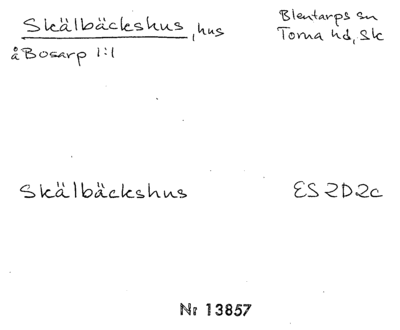 Skälbäckshus, hus
Blentarps sn
Torna hd, Sk
å Bosarp 1:1
Skälbäckshus
ES 2D2c
Nr 13857